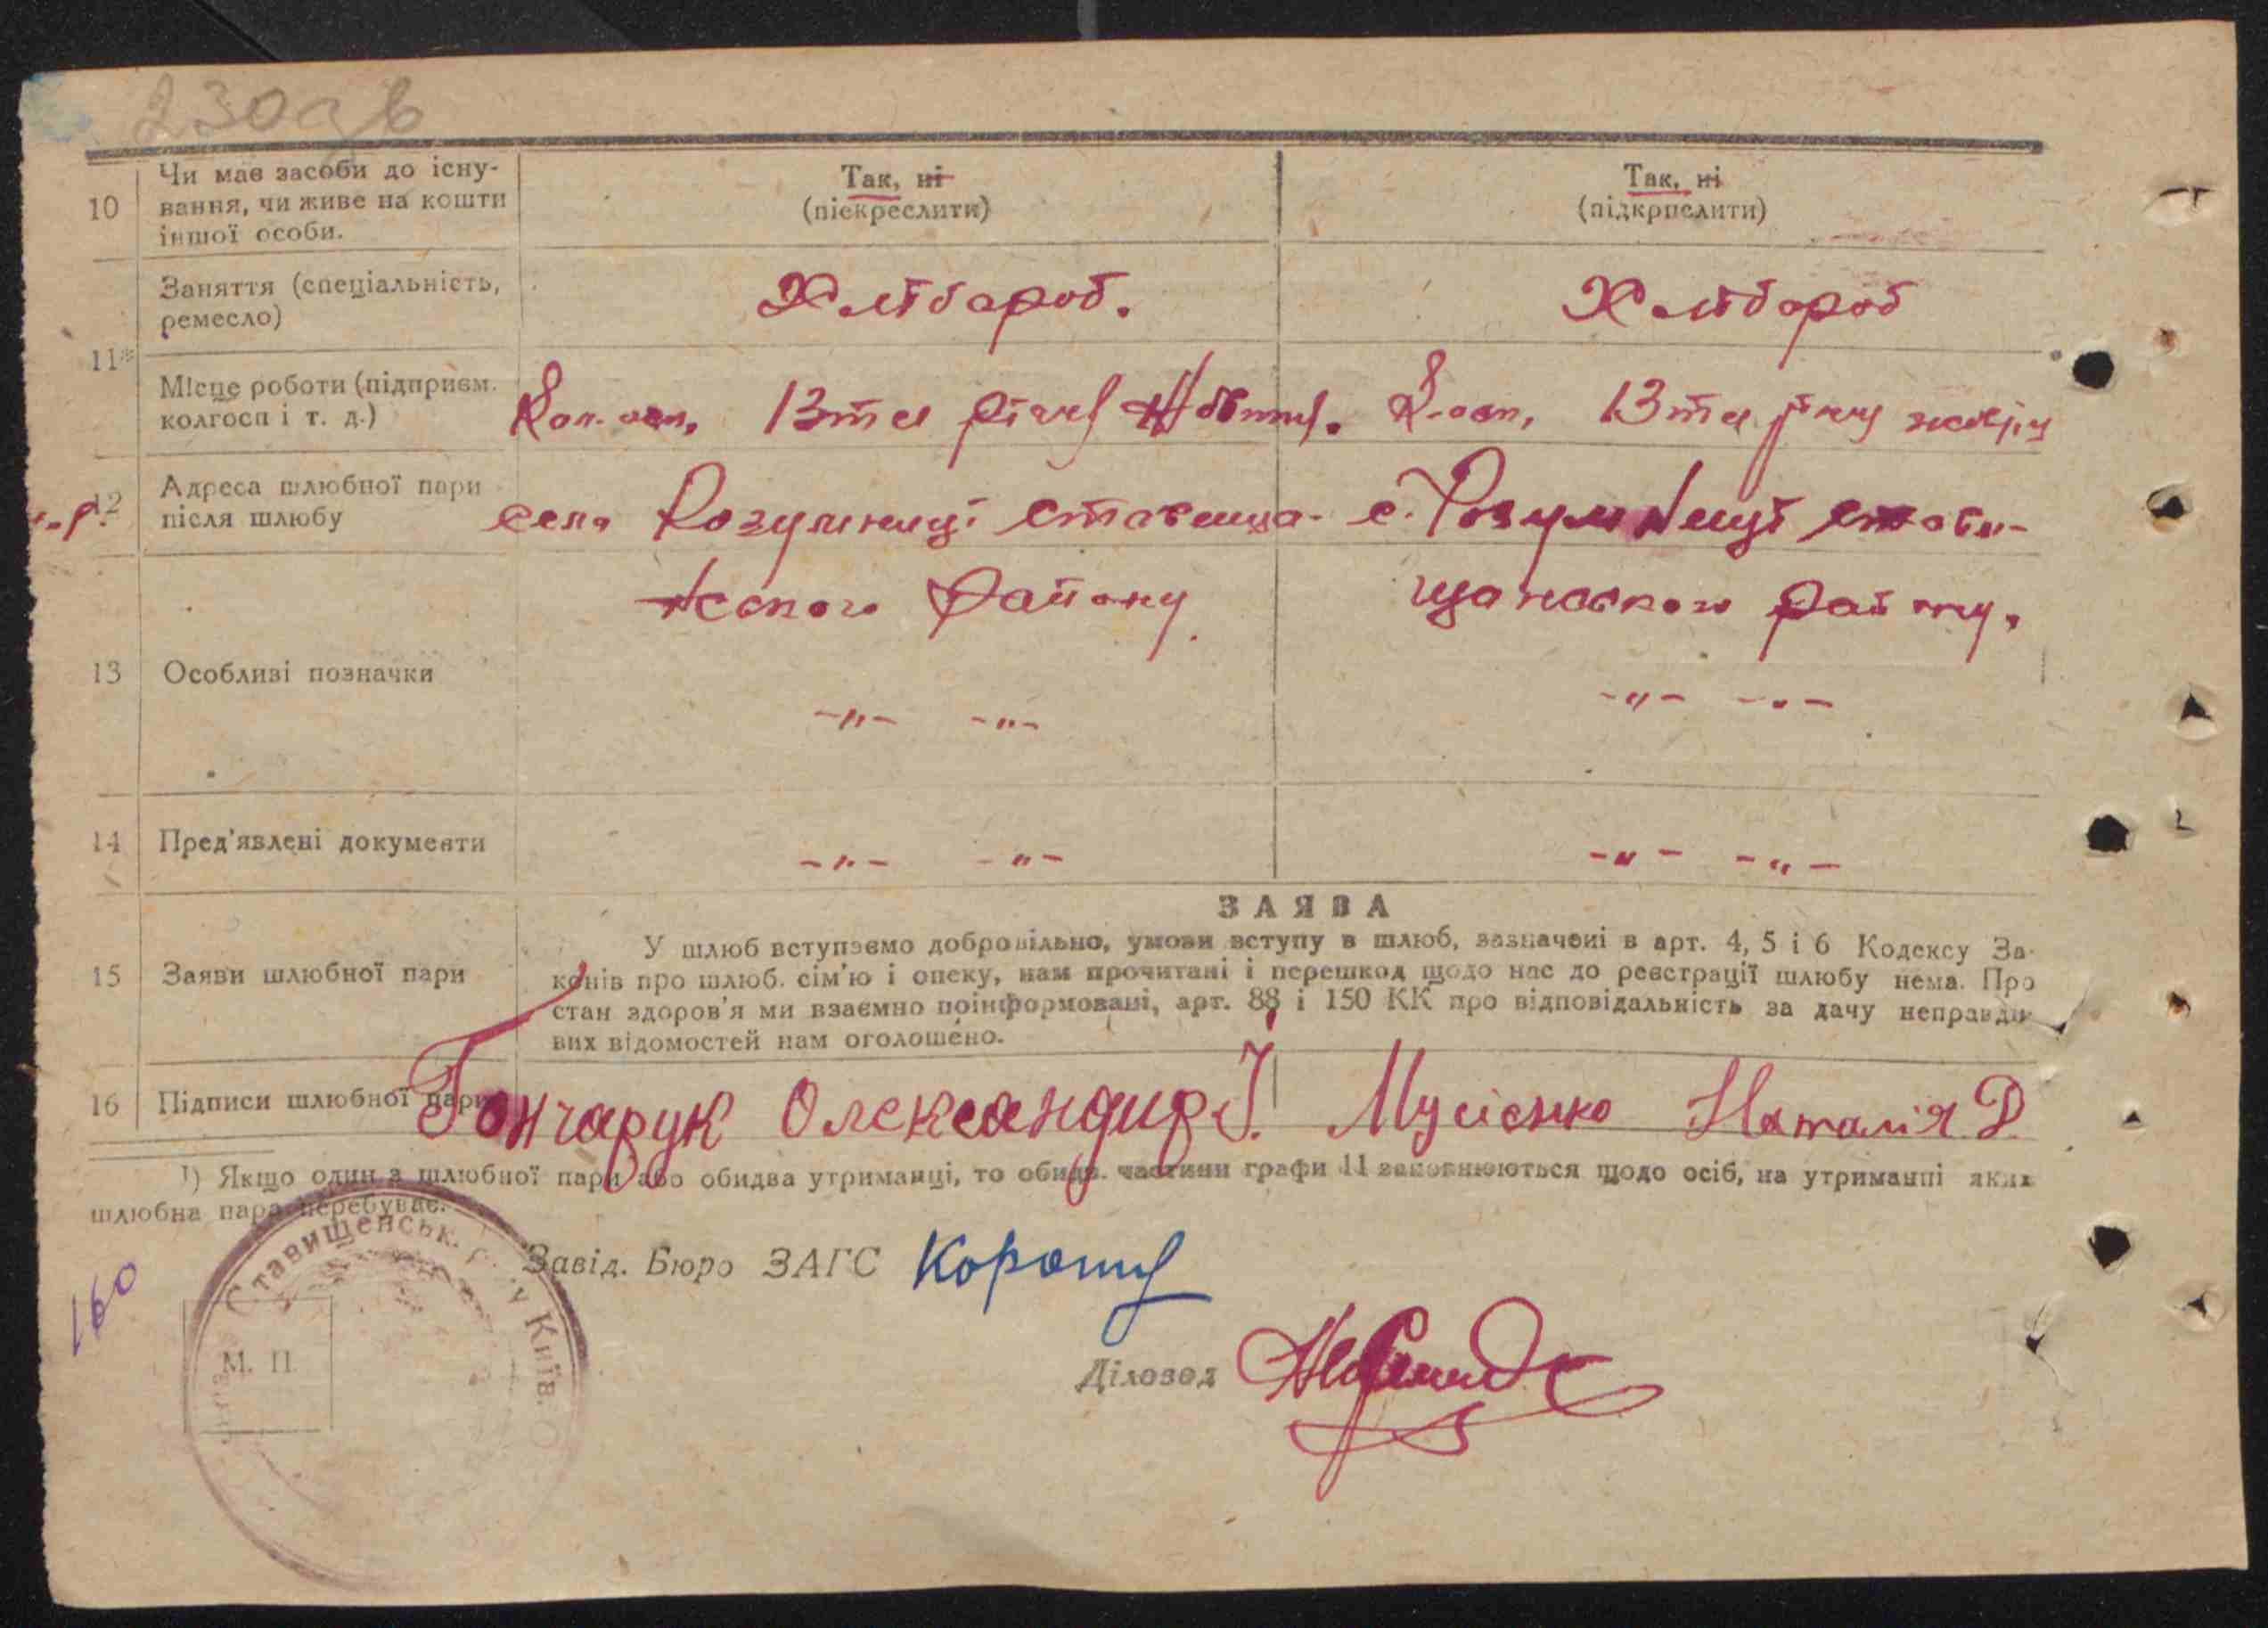 230дв
10 Чи має засоби до існу-
вання, чи живе на кошти
іншої особи.
Так, ні
(піекреслити)
Так, ні
(підкрпслити)
11*
Заняття (спеціальність,
ремесло)
Хлібароб.
Хлібороб
Місце роботи (підприєм.
колгосп і т. д.)
13та річч
13та
12 Адреса шлюбної пари
після шлюбу
село Розумниці ставища-
нского району
с. Розумниці стави-
щанского району.
13 Особливі позначки
-"- -"-
-"- -"-
14 Пред'явлені документи
-"- -"-
-"- -"-
15 Заяви шлюбної пари
ЗАЯВА
У шлюб вступаємо добровільно, умови вступу в шлюб, зазначені в арт. 4, 5 і 6 Кодексу За-
конів про шлюб. сім'ю і опеку, нам прочитані і перешкод щодо нас до реєстрації шлюбу нема. Про
стан здоров'я ми взаємно поінформовані, арт. 88 і 150 КК про відповідальність за дачу неправди-
вих відомостей нам оголошено.
16 Підписи шлюбної пари
Гончарук Олександир І. Мусієнко Наталія Д.
¹) Якщо один з шлюбної пари або обидва утриманці, то обидв. частини графи 11 заповнюються щодо осіб, на утриманні яких
шлюбна пара перебуває.
Ставищенськ. Київ.
Завід. Бюро ЗАГС
160
М. П.
Діловод